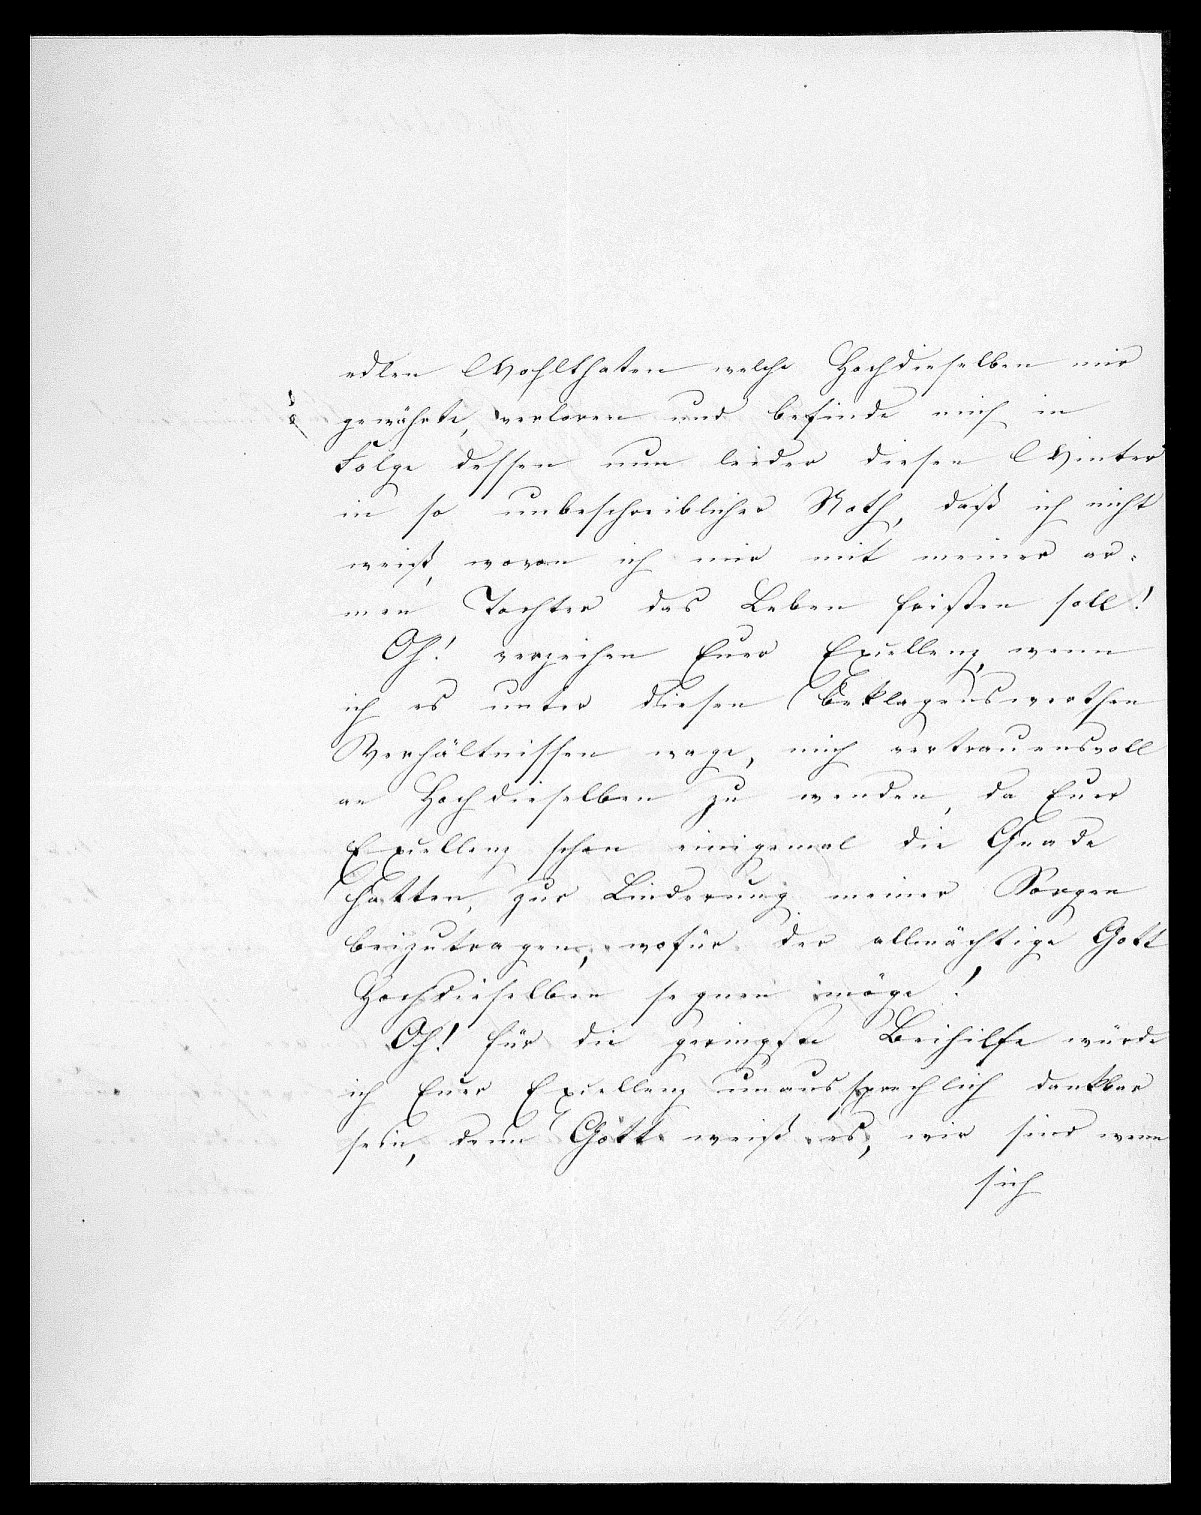 edlen Wohlthaten welche Hochdieselben mir
gewährte, verloren und befinde mich in
Folge dessen nun leider diesen Winter
in so unbeschreiblicher Noth, daß ich nicht
weiß, wovon ich mir mit meiner ar-
men Tochter das Leben fristen soll!
Oh! verzeihen Euer Exzellenz, wenn
ich es unter diesen beklagenswerthen
Verhältnissen wage, mich vertrauensvoll
an Hochdieselben zu wenden, da Euer
Exzellenz schon einigemal die Gnade
hatten, zur Linderung meiner Sorgen
beizutragen, wofür der allmächtige Gott
Hochdieselben segnen möge!
Oh! für die geringste Beihilfe würde
ich Euer Exzellenz unaussprechlich dankbar
sein, denn Gott weiß es, wir sind wenn
sich